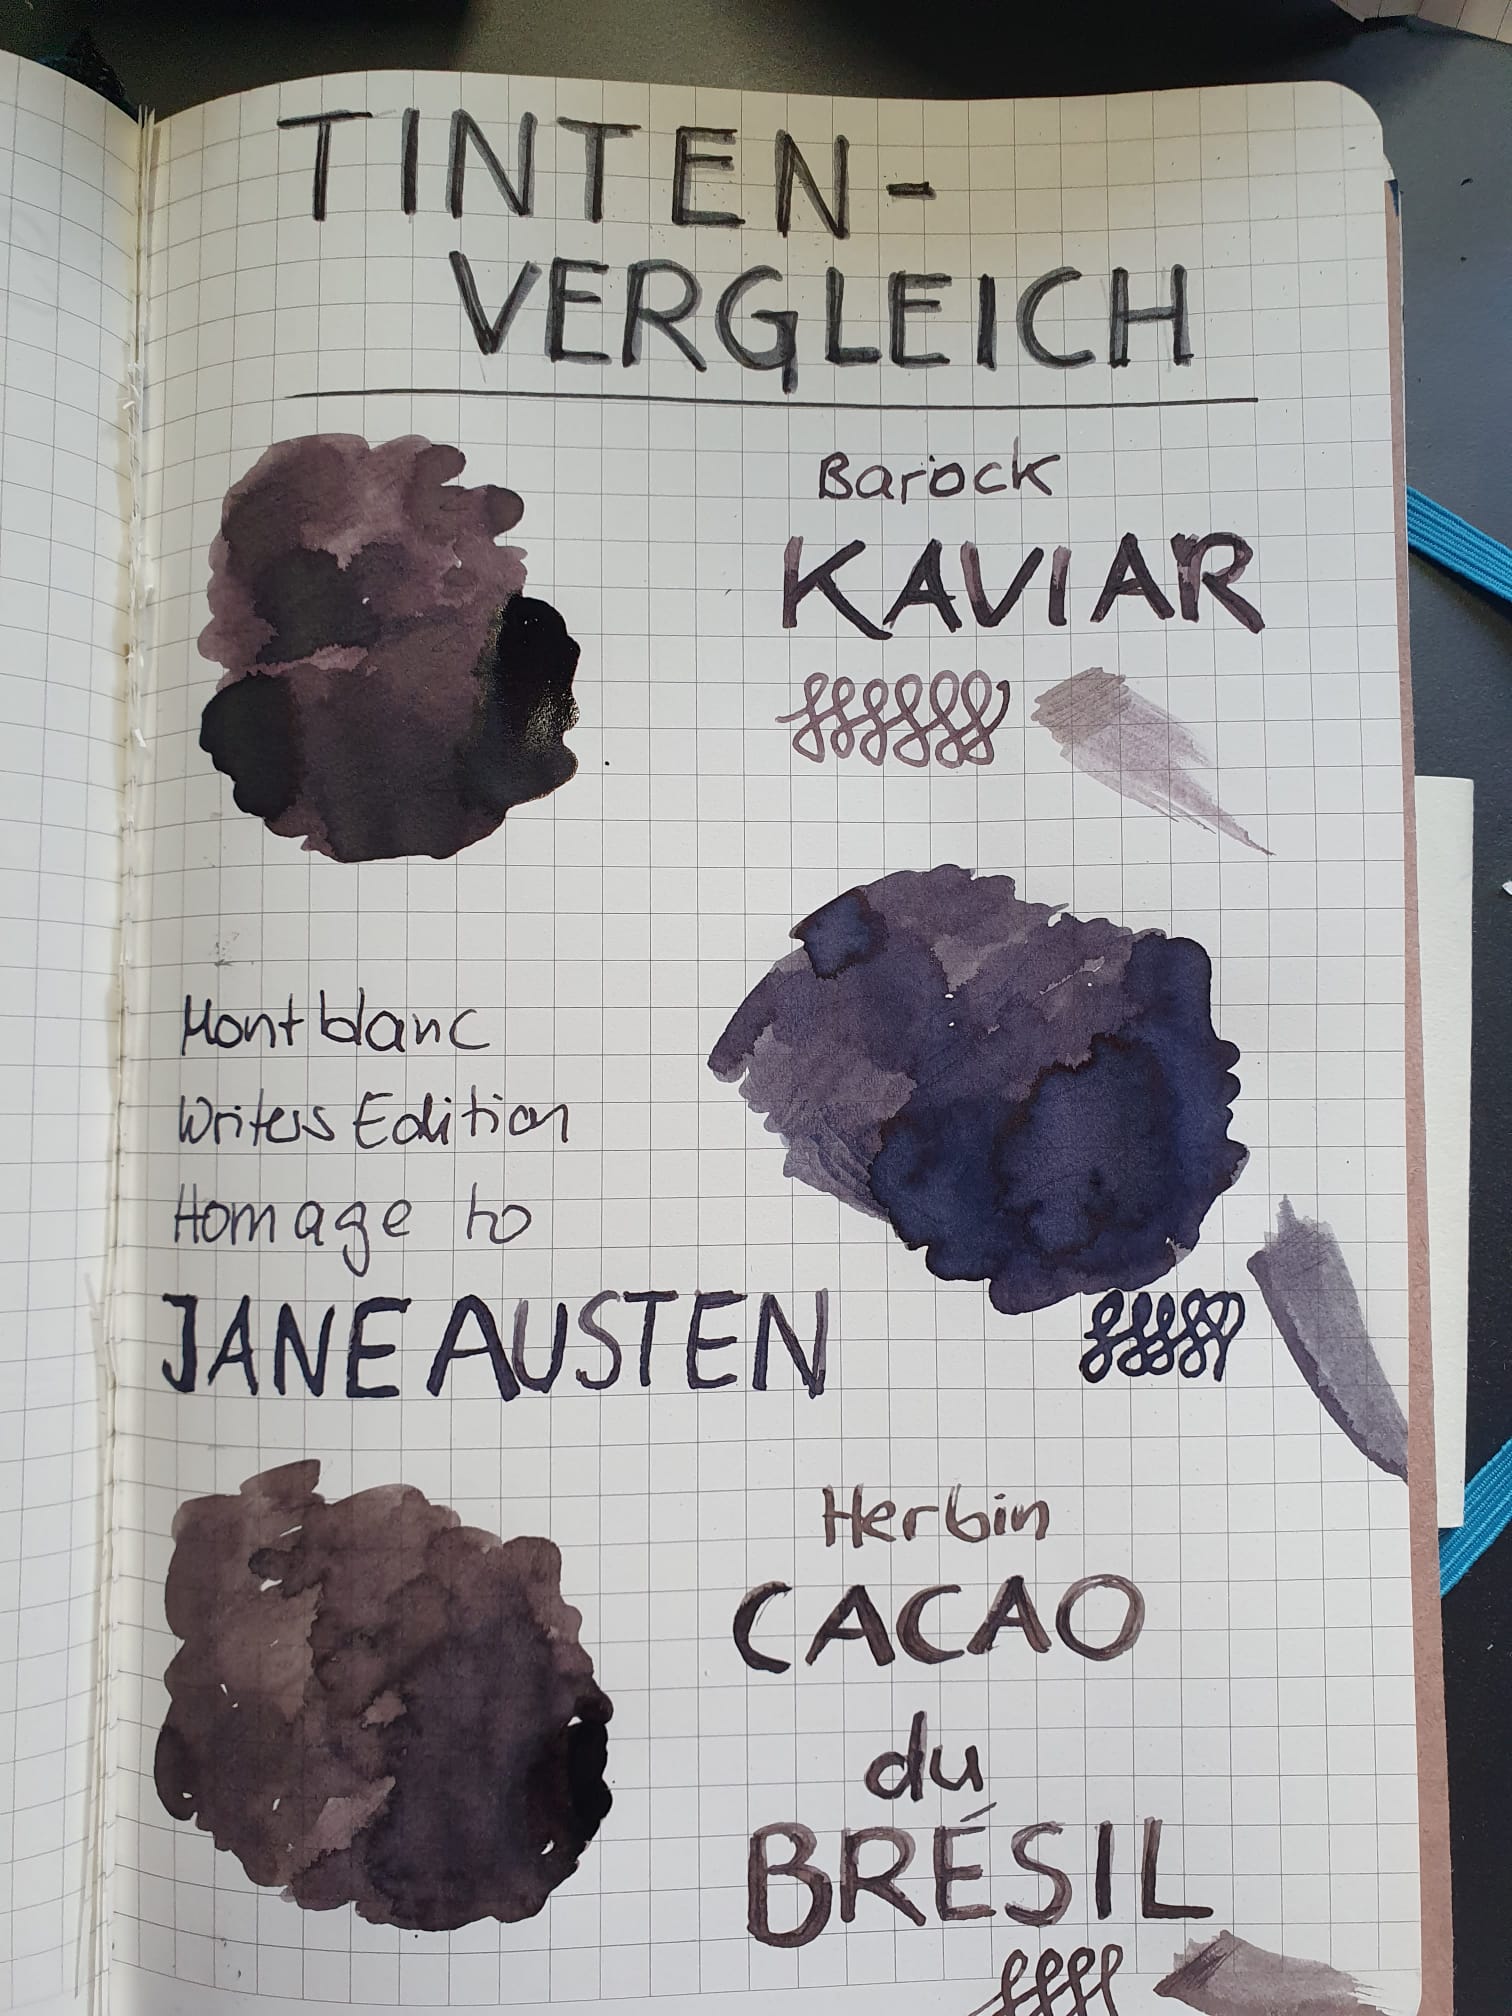 TINTEN-
VERGLEICH
Barock
KAVIAR
Montblanc
Writers Edition
Homage to
JANE AUSTEN
Herbin
CACAO
du
BRÉSIL